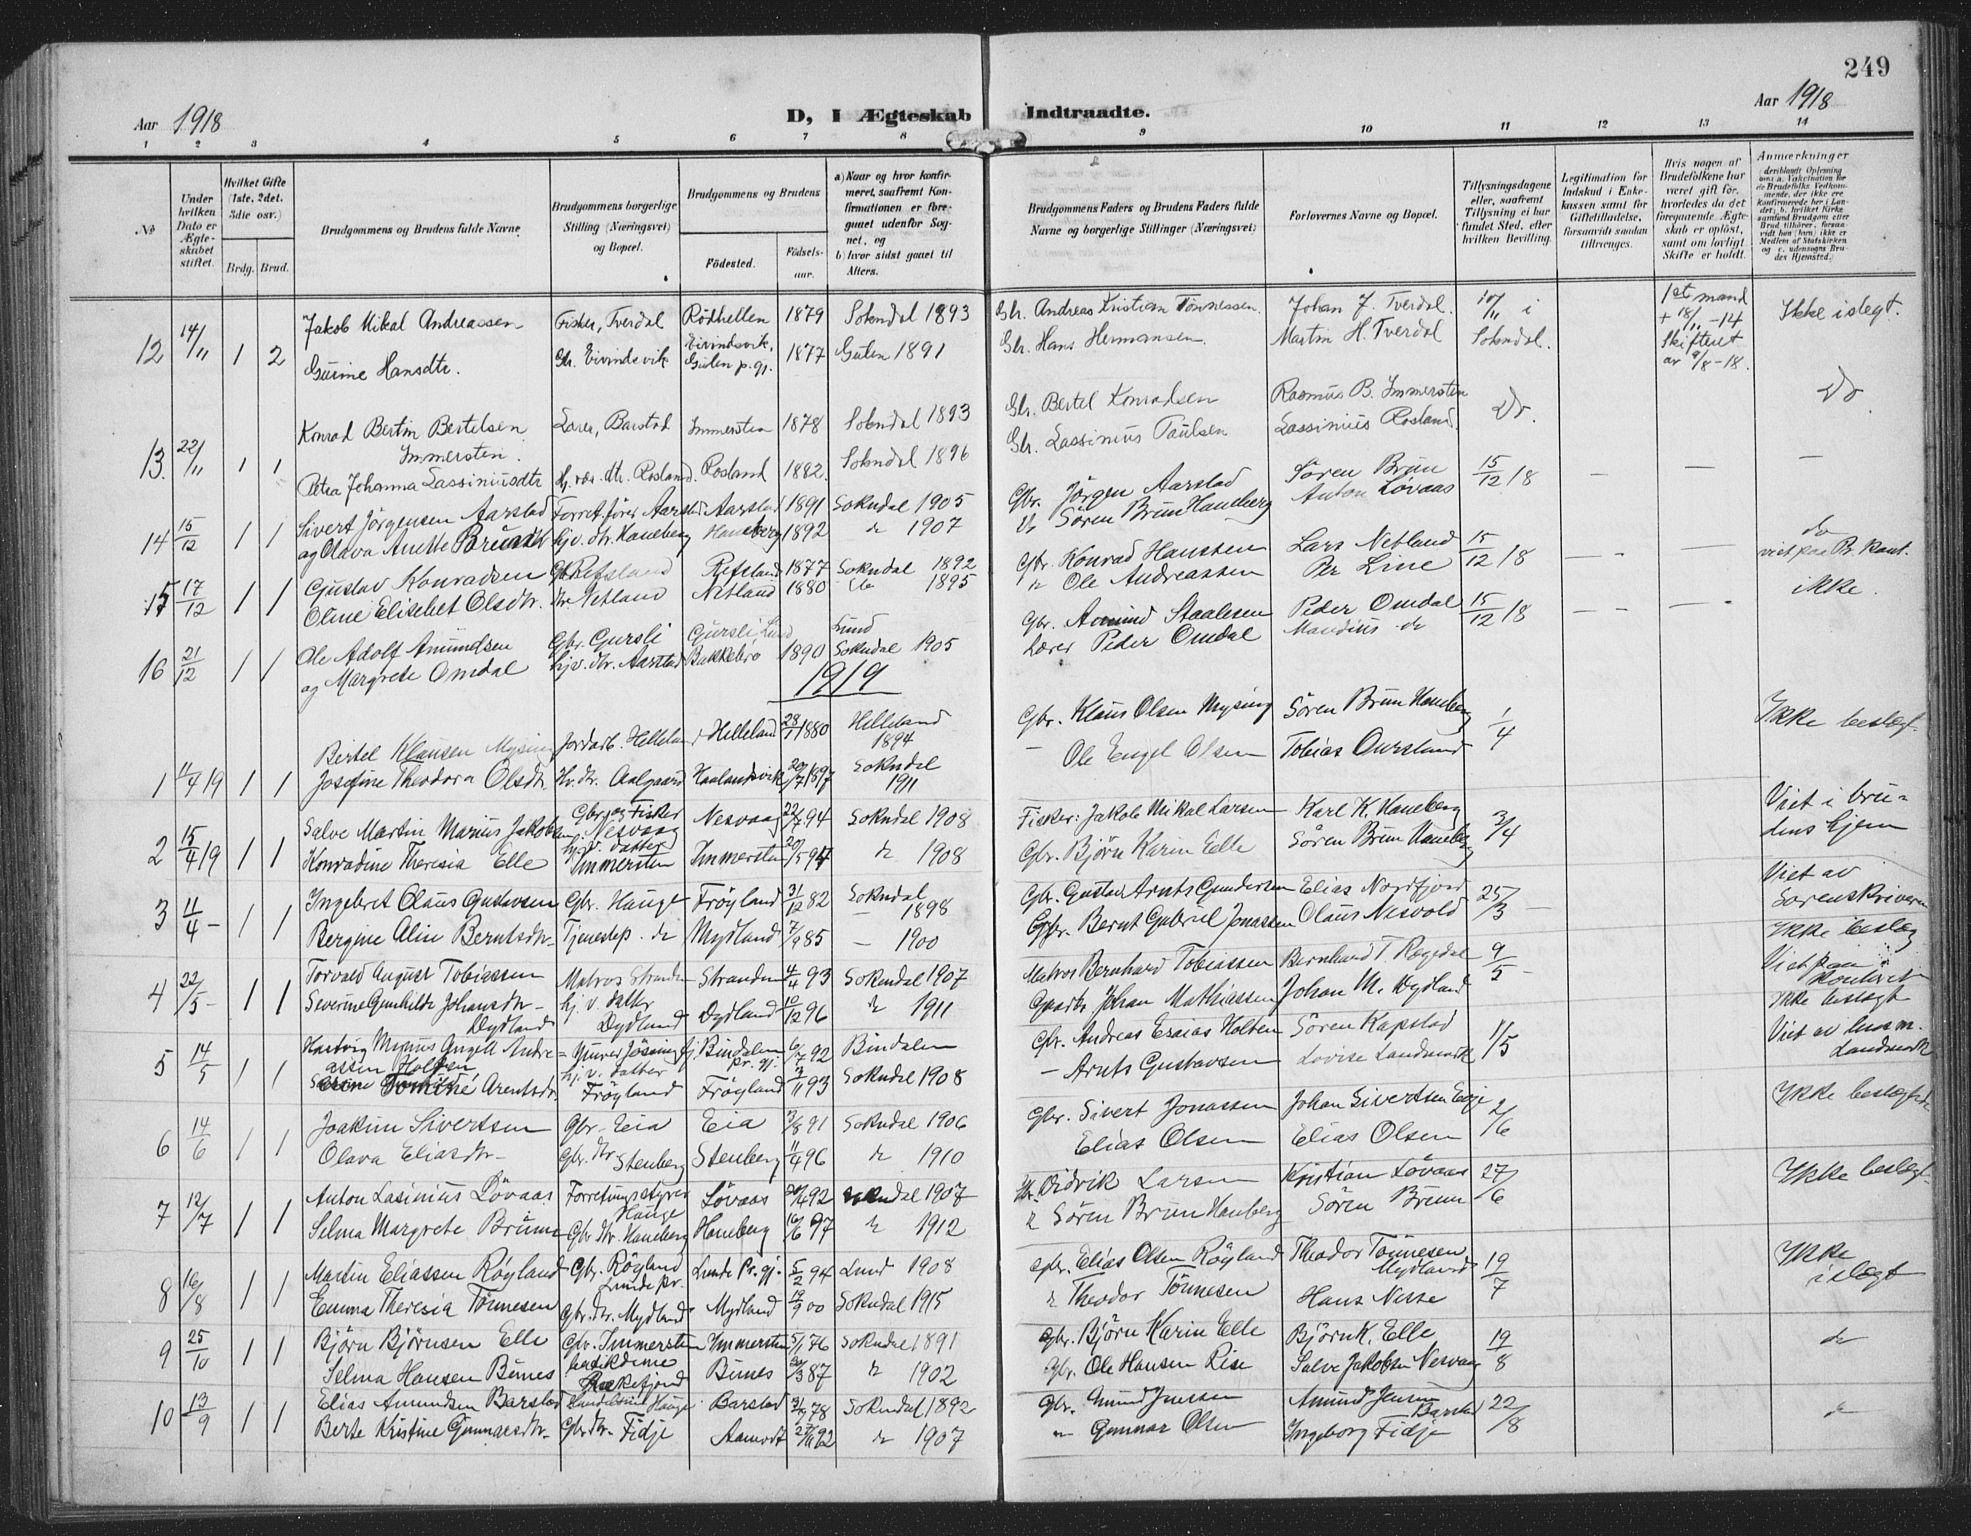 249
Aar 1918
D, I Ægteskab Indtraadte.
Aar 1918
1 2 3 4 5 6 7 8 9 10 11 12 13 14
No
Under hvilken Dato er Ægteskabet stiftet.
Hvilket Gifte (1ste, 2det, 3die osv.)
Brdg. Brud.
Brudgommens og Brudens fulde Navne.
Brudgommens borgerlige Stilling (Næringsvei) og Bopæl.
Brudgommens og Brudens
Fødested. Fødselsaar.
a) Naar og hvor konfirmeret, saafremt Konfirmationen er foregaaet udenfor Sognet, og
b) hvor sidst gaaet til Alters.
Brudgommens Faders og Brudens Faders fulde Navne og borgerlige Stillinger (Næringsvei)
Forlovernes Navne og Bopæl.
Tillysningsdagene eller, saafremt Tillysning ei har fundet Sted, efter hvilken Bevilling.
Legitimation for Indskud i Enkekassen samt for Giftetilladelse, forsaavidt saadan tiltrænges.
Hvis nogen af Brudefolkene har været gift før, hvorledes da det foregaaende Ægteskab er opløst, samt om lovligt Skifte er holdt.
Anmærkninger
12 14/11 1 2
Jakob Mikal Andreassen Fisker, Tverdal Rødhellen 1879 Sokndal 1893 Gbr. Andreas Kristian Tønnessen Johan J. Tverdal 10/11 i 1st mand Ikke i slegt.
Gurine Hansdtr. Gbr. Eivindsvik Eivindsvik, Gulen p.gj. 1877 Gulen 1891 Gbr. Hans Hermansen Martin H. Tverdal Sokndal. + 18/11-14 Skiftet av 9/8-18.
13. 22/11 1 1
Konrad Bertin Bertelsen Immersten. Lærer, Barstad Immersten 1878 Sokndal 1893 Gbr. Bertel Konradsen Rasmus B. Immersten Do. Do
Petra Johanna Lassiniusdtr Rosland Rosland 1882. Sokndal 1896 Gbr. Lassinius Paulsen Lassinius Rosland.
14 15/12 1 1
Sivert Jörgensen Aarstad Aarstad 1891 Sokndal 1905 Gbr. Jörgen Aarstad Sören Brun 15/12 18 — — —
og Olava Anette Hjv. dtr. Haneberg Haneberg 1892 do 1907 Sören Brun Haneberg Anton Lövaas
15 17/12 1 1
Gustav Konradsen Gbr. Refsland Refsland 1877 Sokndal 1892 Gbr. Konrad Hanssen Lars Netland 15/12 18 — — —
Oline Elisabet Olsdtr. Netland Netland 1880 do 1895 Ole Andreassen Per Line ikke.
16 21/12 1 1
Ole Adolf Amundsen Gbr. Gursli Gursli Lund Lund Gbr. Amund Staalesen Peder Omdal 15/12 18 — — —
og Margrete Omdal hjv. dtr. Aarstad Bakkebø 1890 Sokndal 1905 Lærer Peder Omdal Mandius do
1919
1 11/4 19 1 1
Bertel Klausen Mysing Jordarb. Helleland Helleland 28/1 1880 Helleland 1894 Gbr. Klaus Olsen Mysing Sören Brun Haneberg 1/4 Ikke beslegt.
Josefine Theodora Olsdtr. Hv. dtr. Aalgaard Haalandsvik 20/7 1897 Sokndal 1911 — Ole Engel Olsen Tobias Aursland
2 15/4 19 1 1
Salve Martin Marius Jakobsen Gbr. og Fisker Nesvaag Nesvaag 22/7 94 Sokndal 1908 Fisker: Jakob Mikal Larsen Karl K. Haneberg 3/4 Viet i brudens hjem
Konradine Theresia Elle hj. v. datter Immersten Immersten 20/5 94 do 1908 Gbr. Björn Karin Elle Sören Brun Haneberg
3 11/4 – 1 1
Ingebret Olaus Gustavsen Gbr. Hauge Fröyland 31/12 82 Sokndal 1898 Gbr. Gustav Arnts Gundersen Elias Nordfjord 25/3 — Viet av Sorenskriveren
Bergine Alin Berntsdtr. Tjenestep. do Mydland 7/9 85 — 1900 Gbr. Bernt Gabriel Jonassen Olaus Nesvold Ikke beslegt
4 22/5 – 1 1
Torvald August Tobiassen Matros Stranden Stranden 4/4 93 Sokndal 1907 Matros Bernhard Tobiassen Bernhard T. Regedal 9/5 — Viet paa kontoret
Severine Gunhilde Johansdtr. Dydland hj. v. datter Dydland Dydland 10/12 96 do 1911 Johan Mathiassen Johan M. Dydland Ikke beslegt
5 14/5 1 1
Hartvig Magnus Angell Andreassen Holten Bindalen pr. gj. 6/7 92 Bindalen Gbr. Andreas Esaias Holten Sören Kapstad 1/5 Viet av Landmark
Arentsdtr. hj. v. datter Fröyland Fröyland 3/11 93 Sokndal 1908 — Arnts Gustavsen Lovise Landmark
6 14/6 1 1
Joakim Sivertsen Gbr. Eia Eia 3/8 91 Sokndal 1906 Gbr. Sivert Jonassen Johan Sivertsen Eie 2/6 Ikke beslegtede
Olava Eliasdtr. Gbr. dtr. Stenberg Stenberg 11/4 96 do 1910 Elias Olsen Elias Olsen
7 12/7 1 1
Anton Lasinius Lövaas Forretningsstyrer Hauge Lövaas 92 Sokndal 1907 Didrik Larsen Kristian Lövaas 27/6 Ikke beslegt.
Selma Margrete Brun Gbr. dtr. Haneberg Haneberg 16/6 97 do 1912 Sören Brun Haneberg Sören Brun
8 16/8 1 1
Martin Eliassen Röyland Gbr. Röyland Lunde pr. Lunde Pr. gj. 5/2 94 Lund 1908 Gbr. Elias Olsen Röyland Theodor Tönnesen Mydland 19/7 Ikke i slegt
Emma Theresia Tönnesen Gbr. dtr. Mydland Mydland 19/9 00 Sokndal 1915 do Theodor Tönnesen Hans Nesse
9 25/10 1 1
Björn Björnsen Elle Gbr. Immersten Immersten 5/1 76 Sokndal 1891 Gbr. Björn Karin Elle Björn K. Elle 19/8 do
Selma Hansen Bunes Rekefjord Bunes 87 do 1902 Gbr. Ole Hansen Lise Salve Jakobsen Nesvaag
10 13/9 1 1
Elias Amundsen Barstad Hauge Barstad 78 Sokndal 1892 Gbr. Amund Jenssen Amund Jensen Barstad 22/8 do
Berte Kristine Gunnarsdtr. Gbr. dtr. Fidje Aamodt 27/11 92 do 1907 Gunnar Olsen Ingeborg Fidje